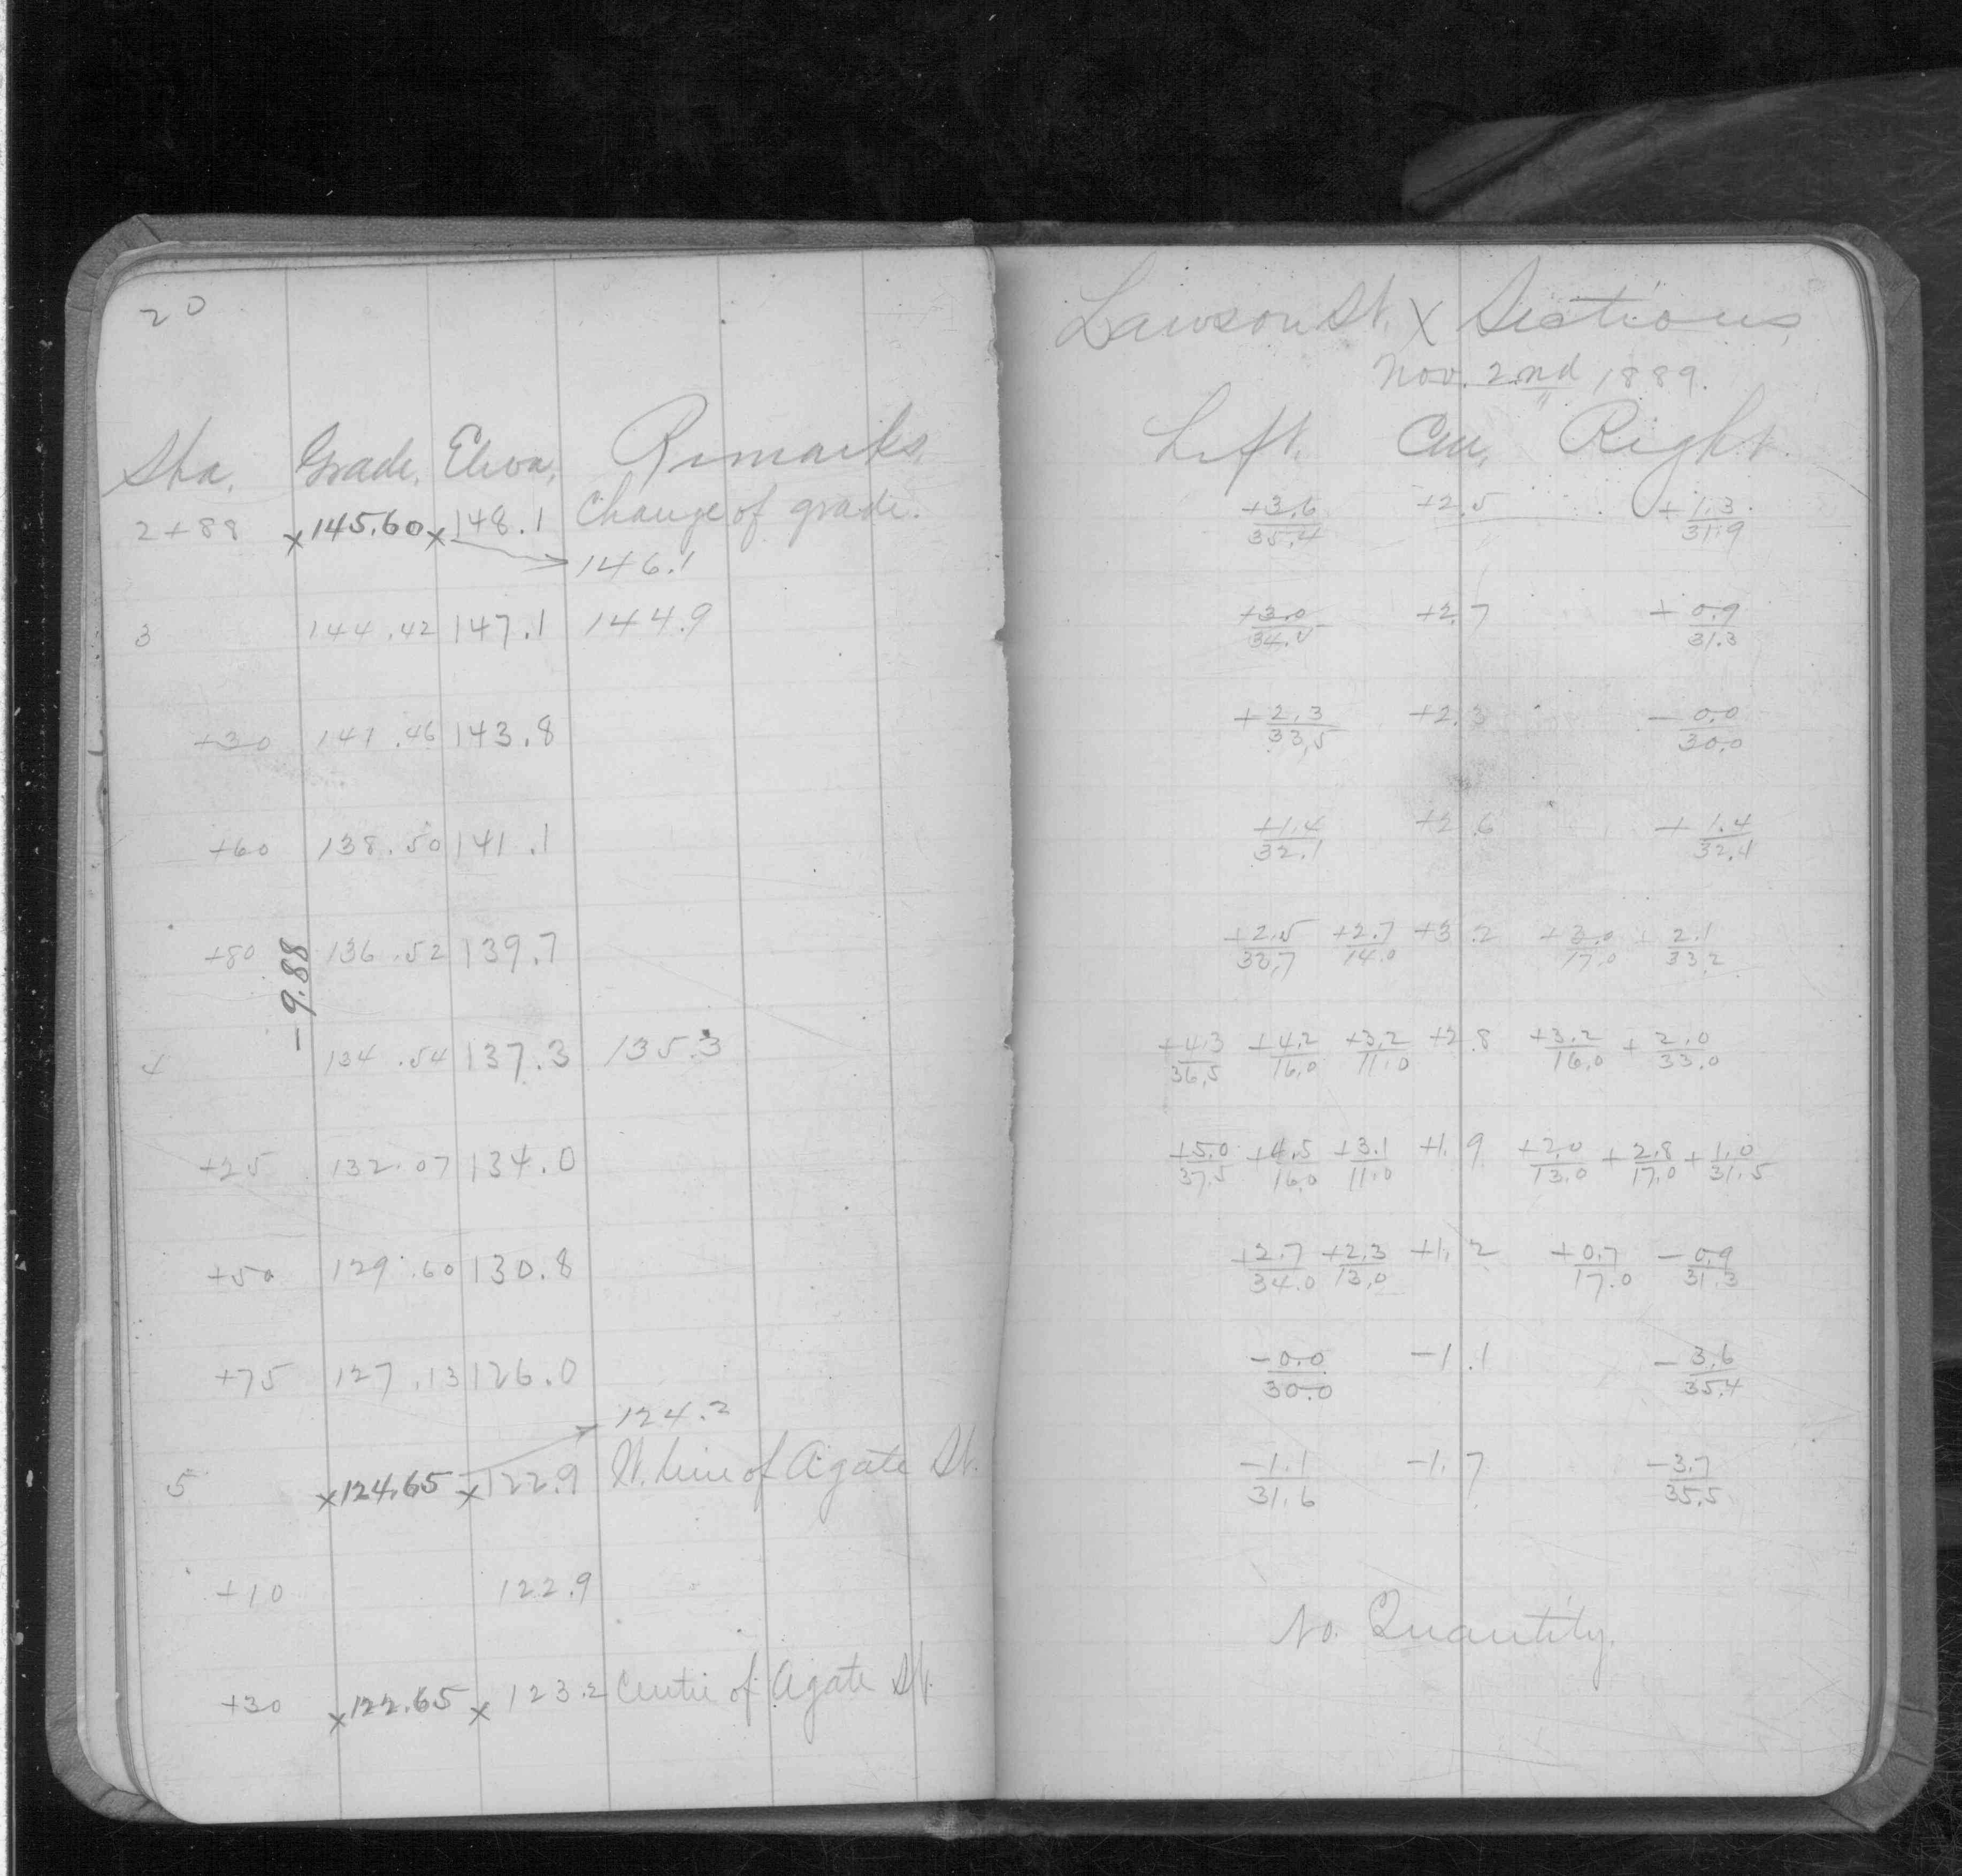 20
Sta. Grade. Eleva. Remarks.
2+88 x 145.60 x 148.1 Change of grade.
146.1
3 144.42 147.1 144.9
+30 141.46 143.8
+60 138.50 141.1
+80 136.52 139.7
-9.88
4 134.54 137.3 135.3
+25 132.07 134.0
+50 129.60 130.8
+75 127.13 126.0
124.2
5 x 124.65 x 122.9 W. line of Agate St.
+10 122.9
+30 x 122.65 x 123.2 Centre of Agate St.
Lawson St. X Sections
Nov. 2nd 1889.
Left. Cen. Right.
+3.6/35.4 +2.5 +1.3/31.9
+3.0/34.5 +2.7 +0.9/31.3
+2.3/33.5 +2.3 -0.0/30.0
+1.4/32.1 +2.6 +1.4/32.1
+2.5/33.7 +2.7/14.0 +3.2 +3.0/17.0 +2.1/33.2
+4.3/36.5 +4.2/16.0 +3.2/11.0 +2.8 +3.2/16.0 +2.0/33.0
+5.0/37.5 +4.5/16.0 +3.1/11.0 +1.9 +2.0/13.0 +2.8/17.0 +1.0/31.5
+2.7/34.0 +2.3/13.0 +1.2 +0.7/17.0 -0.9/31.3
-0.0/30.0 -1.1 -3.6/35.4
-1.1/31.6 -1.7 -3.7/35.5
No. Quantity.